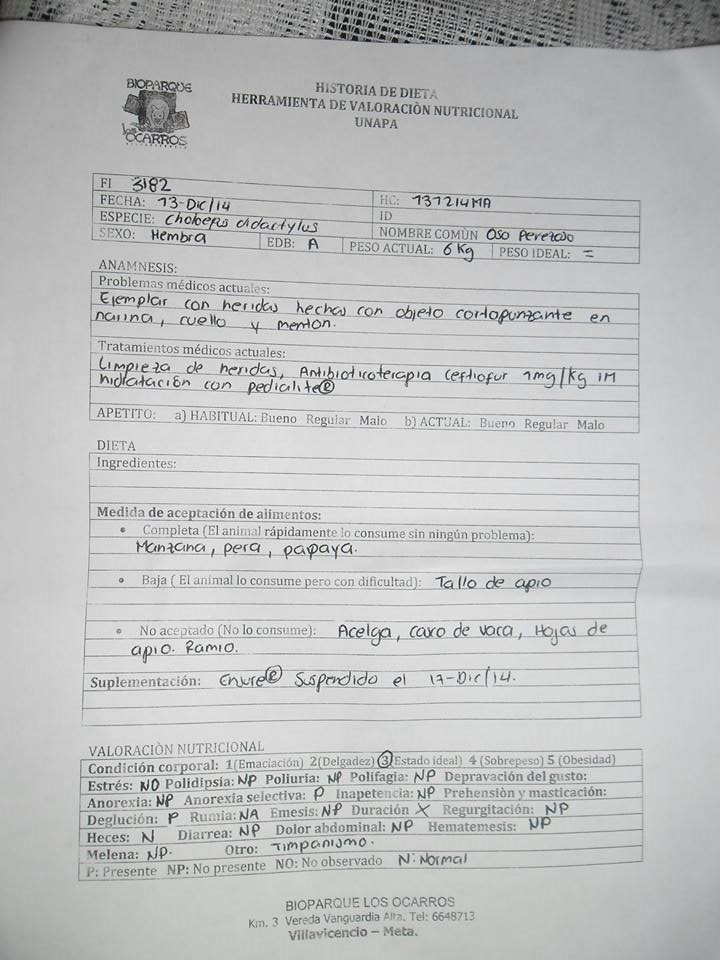 BIOPARQUE
los
OCARROS
HISTORIA DE DIETA
HERRAMIENTA DE VALORACIÒN NUTRICIONAL
UNAPA
FI 3182
FECHA: 13-Dic/14 HC: 131214MA
ESPECIE: Choloepis didactylus ID
SEXO: Hembra EDB: A PESO ACTUAL: 6 Kg NOMBRE COMÙN Oso Perezoso PESO IDEAL: =
ANAMNESIS:
Problemas médicos actuales:
Ejemplar con heridas hechas con objeto cortopunzante en
narina, cuello y menton.
Tratamientos médicos actuales:
Limpieza de heridas, Antibioticoterapia Ceftiofur 1mg/Kg IM
hidratación con pedialite®
APETITO: a) HABITUAL: Bueno Regular Malo b) ACTUAL: Bueno Regular Malo
DIETA
Ingredientes:
Medida de aceptación de alimentos:
• Completa (El animal rápidamente lo consume sin ningún problema):
Manzana, pera, papaya.
• Baja ( El animal lo consume pero con dificultad): Tallo de apio
• No aceptado (No lo consume): Acelga, caxo de vaca, Hojas de
apio. Ramio.
Suplementación: Ensure® Suspendido el 17-Dic/14.
VALORACIÒN NUTRICIONAL
Condición corporal: 1(Emaciación) 2(Delgadez) 3(Estado ideal) 4 (Sobrepeso) 5 (Obesidad)
Estrés: NO Polidipsia: NP Poliuria: NP Polifagia: NP Depravación del gusto:
Anorexia: NP Anorexia selectiva: P Inapetencia: NP Prehensiòn y masticación:
Deglución: P Rumia: NA Emesis: NP Duración X Regurgitación: NP
Heces: N Diarrea: NP Dolor abdominal: NP Hematemesis: NP
Melena: NP. Otro: Timpanismo.
P: Presente NP: No presente NO: No observado N: Normal
BIOPARQUE LOS OCARROS
Km. 3 Vereda Vanguardia Alta. Tel: 6648713
Villavicencio – Meta.